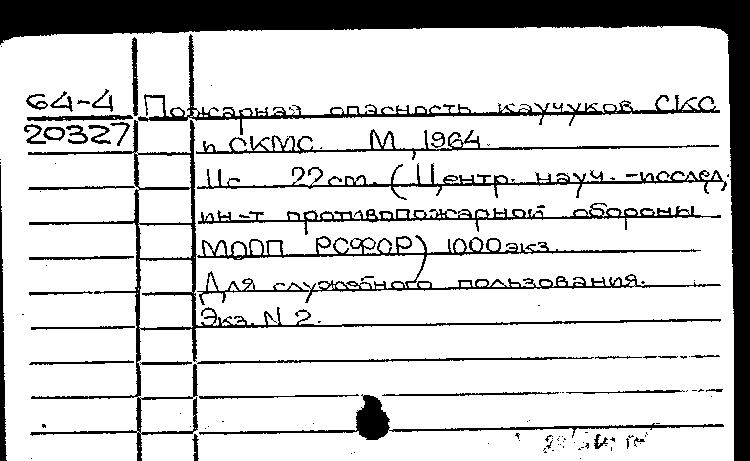 64-4 Пожарная опасность каучуков СКС
20327 п СКМС. М, 1964.
11с 22см. (Центр. науч.-исслед.
ин-т противопожарной обороны
МООП РСФСР) 1000экз.
Для служебного пользования.
Экз. N 2.